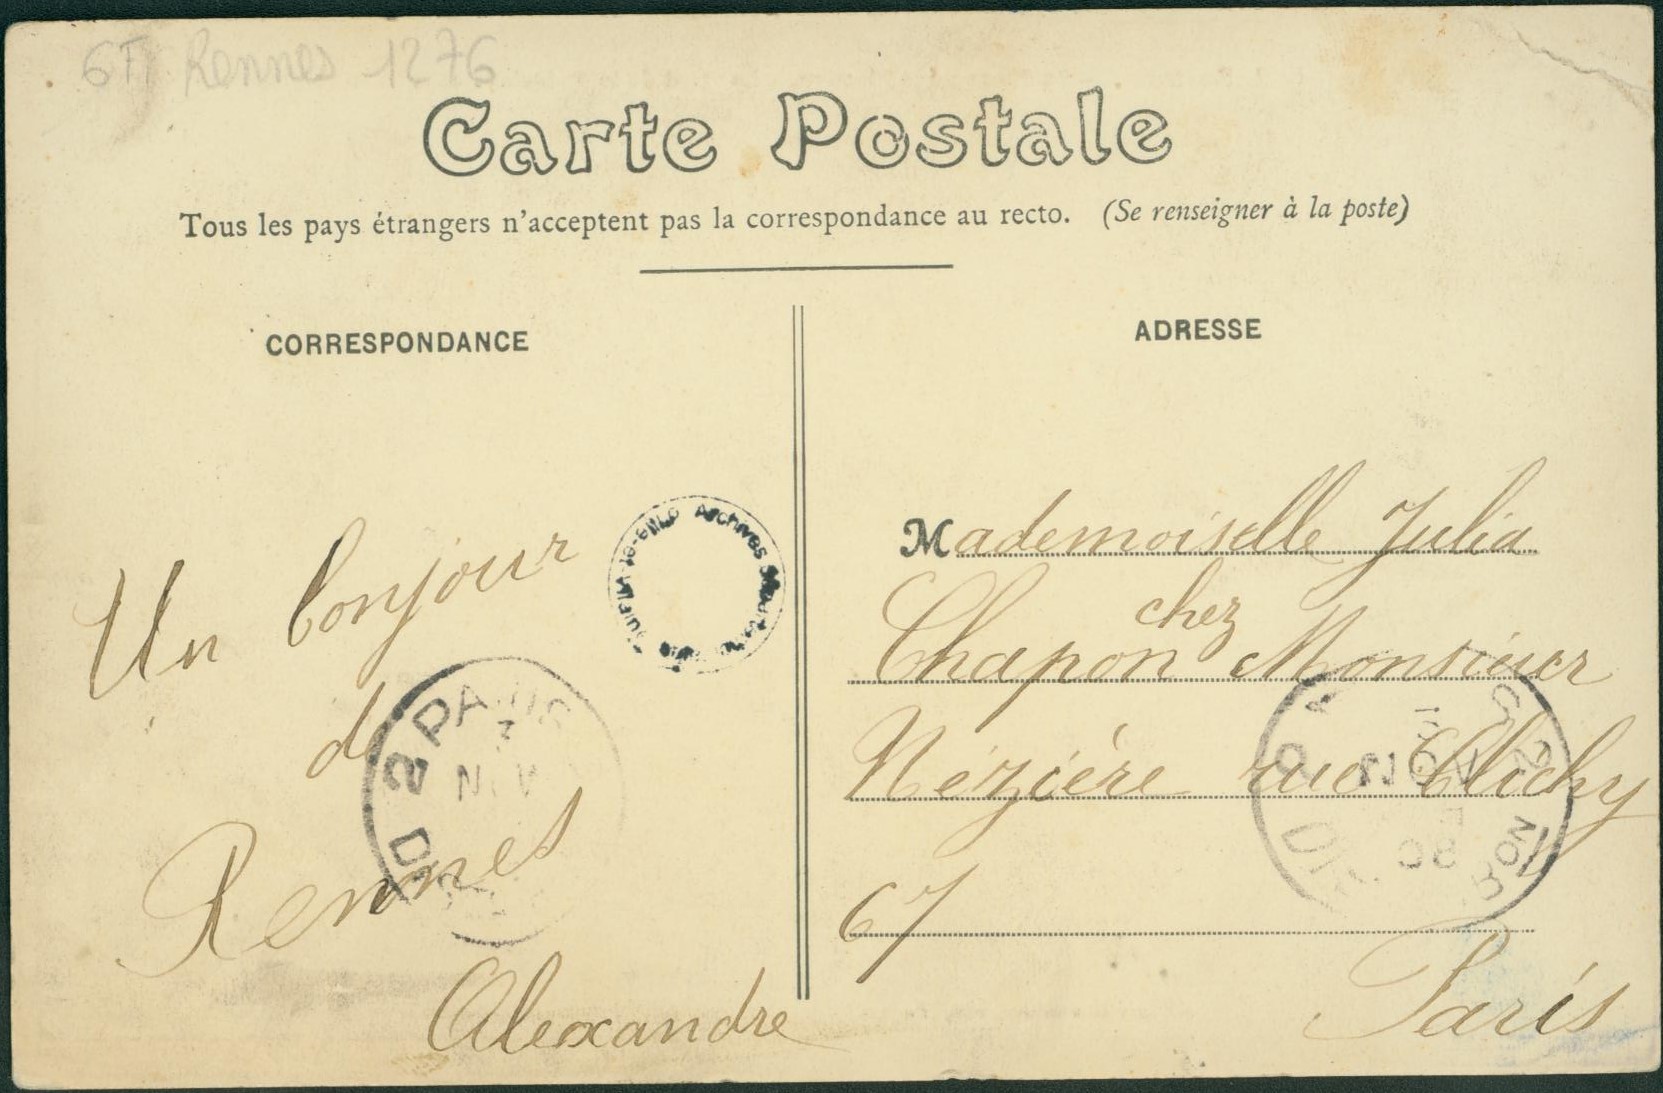 6Fi Rennes 1276
Carte Postale
Tous les pays étrangers n'acceptent pas la correspondance au recto. (Se renseigner à la poste)
CORRESPONDANCE
Un bonjour
de
Rennes
Alexandre
Archives
2 PARIS
3
NOV
ADRESSE
Mademoiselle Julia
chez
Chapon Monsieur
Nézière rue Clichy
67
Paris
NOV
08